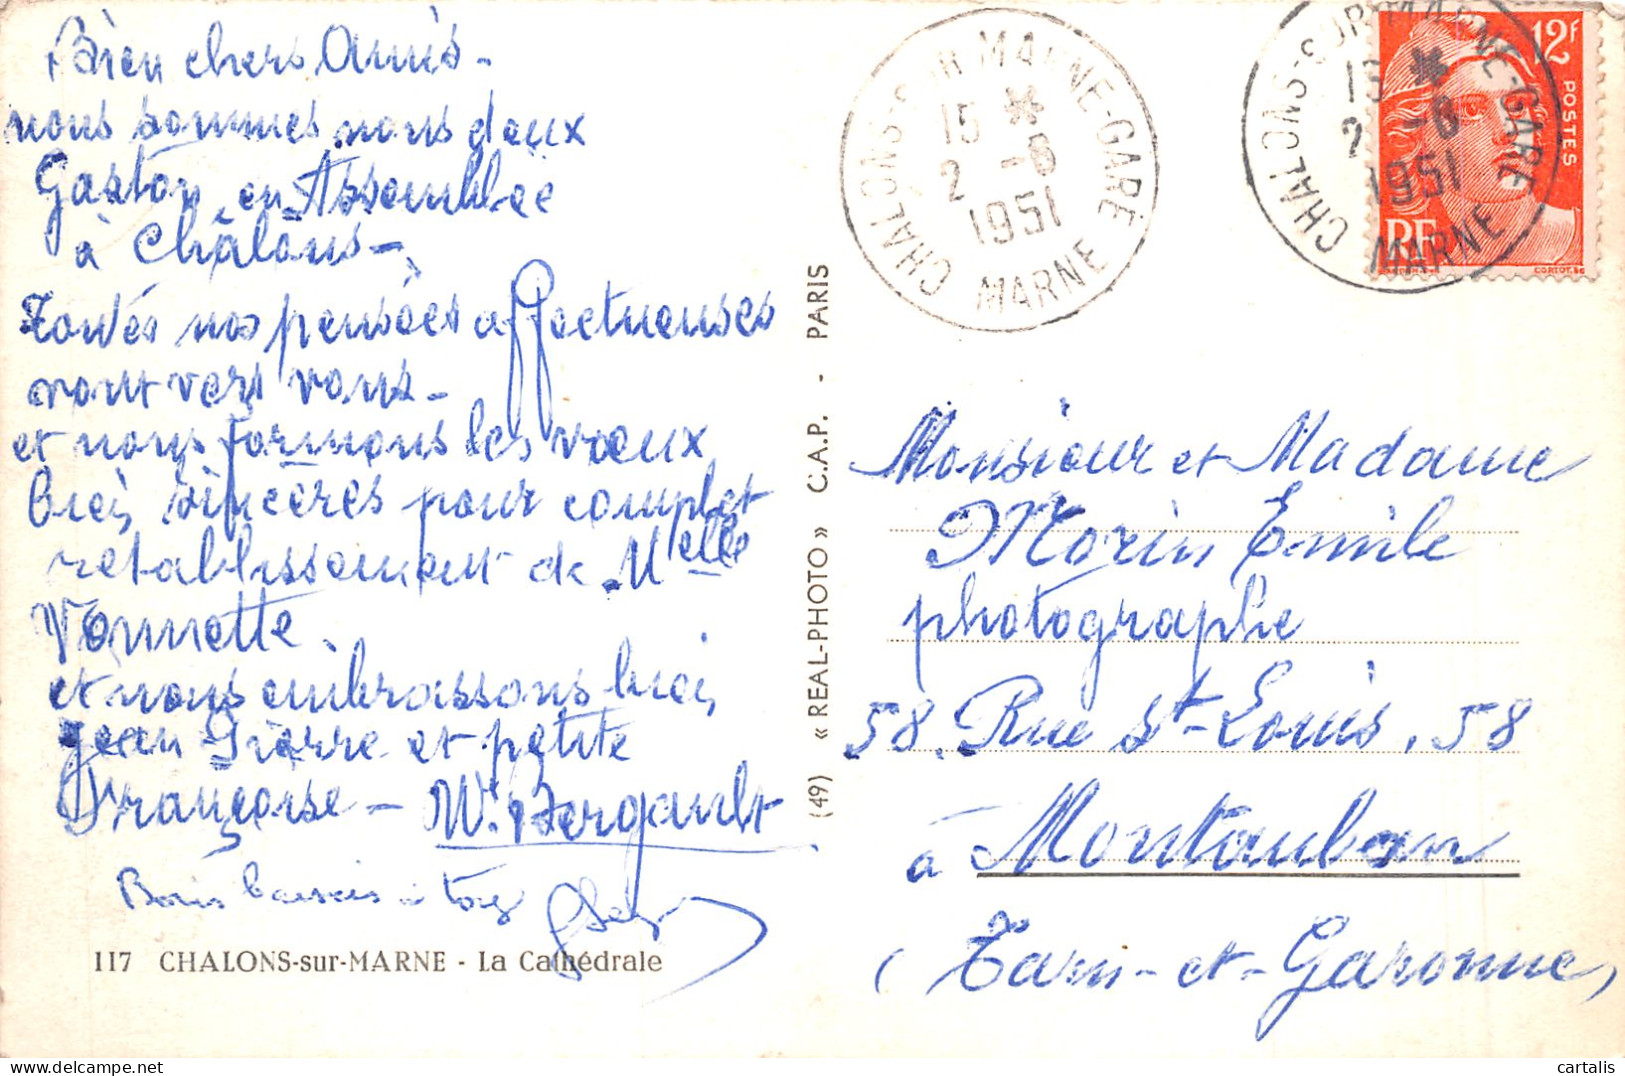 Bien chers Amis -
nous sommes nous deux
Gaston en Assemblée
à Châlons -
Toutes nos pensées affectueuses
vont vers vous -
et nous formons les vœux
bien sincères pour complet
rétablissement de Melle
Vonnette
et nous embrassons bien
Jean Pierre et petite
Françoise - W. Bergault
Bons baisers à tous
117 CHALONS-sur-MARNE - La Cathédrale
(49) « REAL-PHOTO » C.A.P. - PARIS
CHALONS-SUR MARNE-GARE
15 *
2 -6
1951
MARNE
CHALONS-SUR MARNE-GARE
15 *
2 -6
1951
MARNE
12F
POSTES
RF
CORTOT.SC
Monsieur et Madame
Morin Emile
photographe
58. Rue St-Louis. 58
à Montauban
(Tarn-et-Garonne)
cartalis